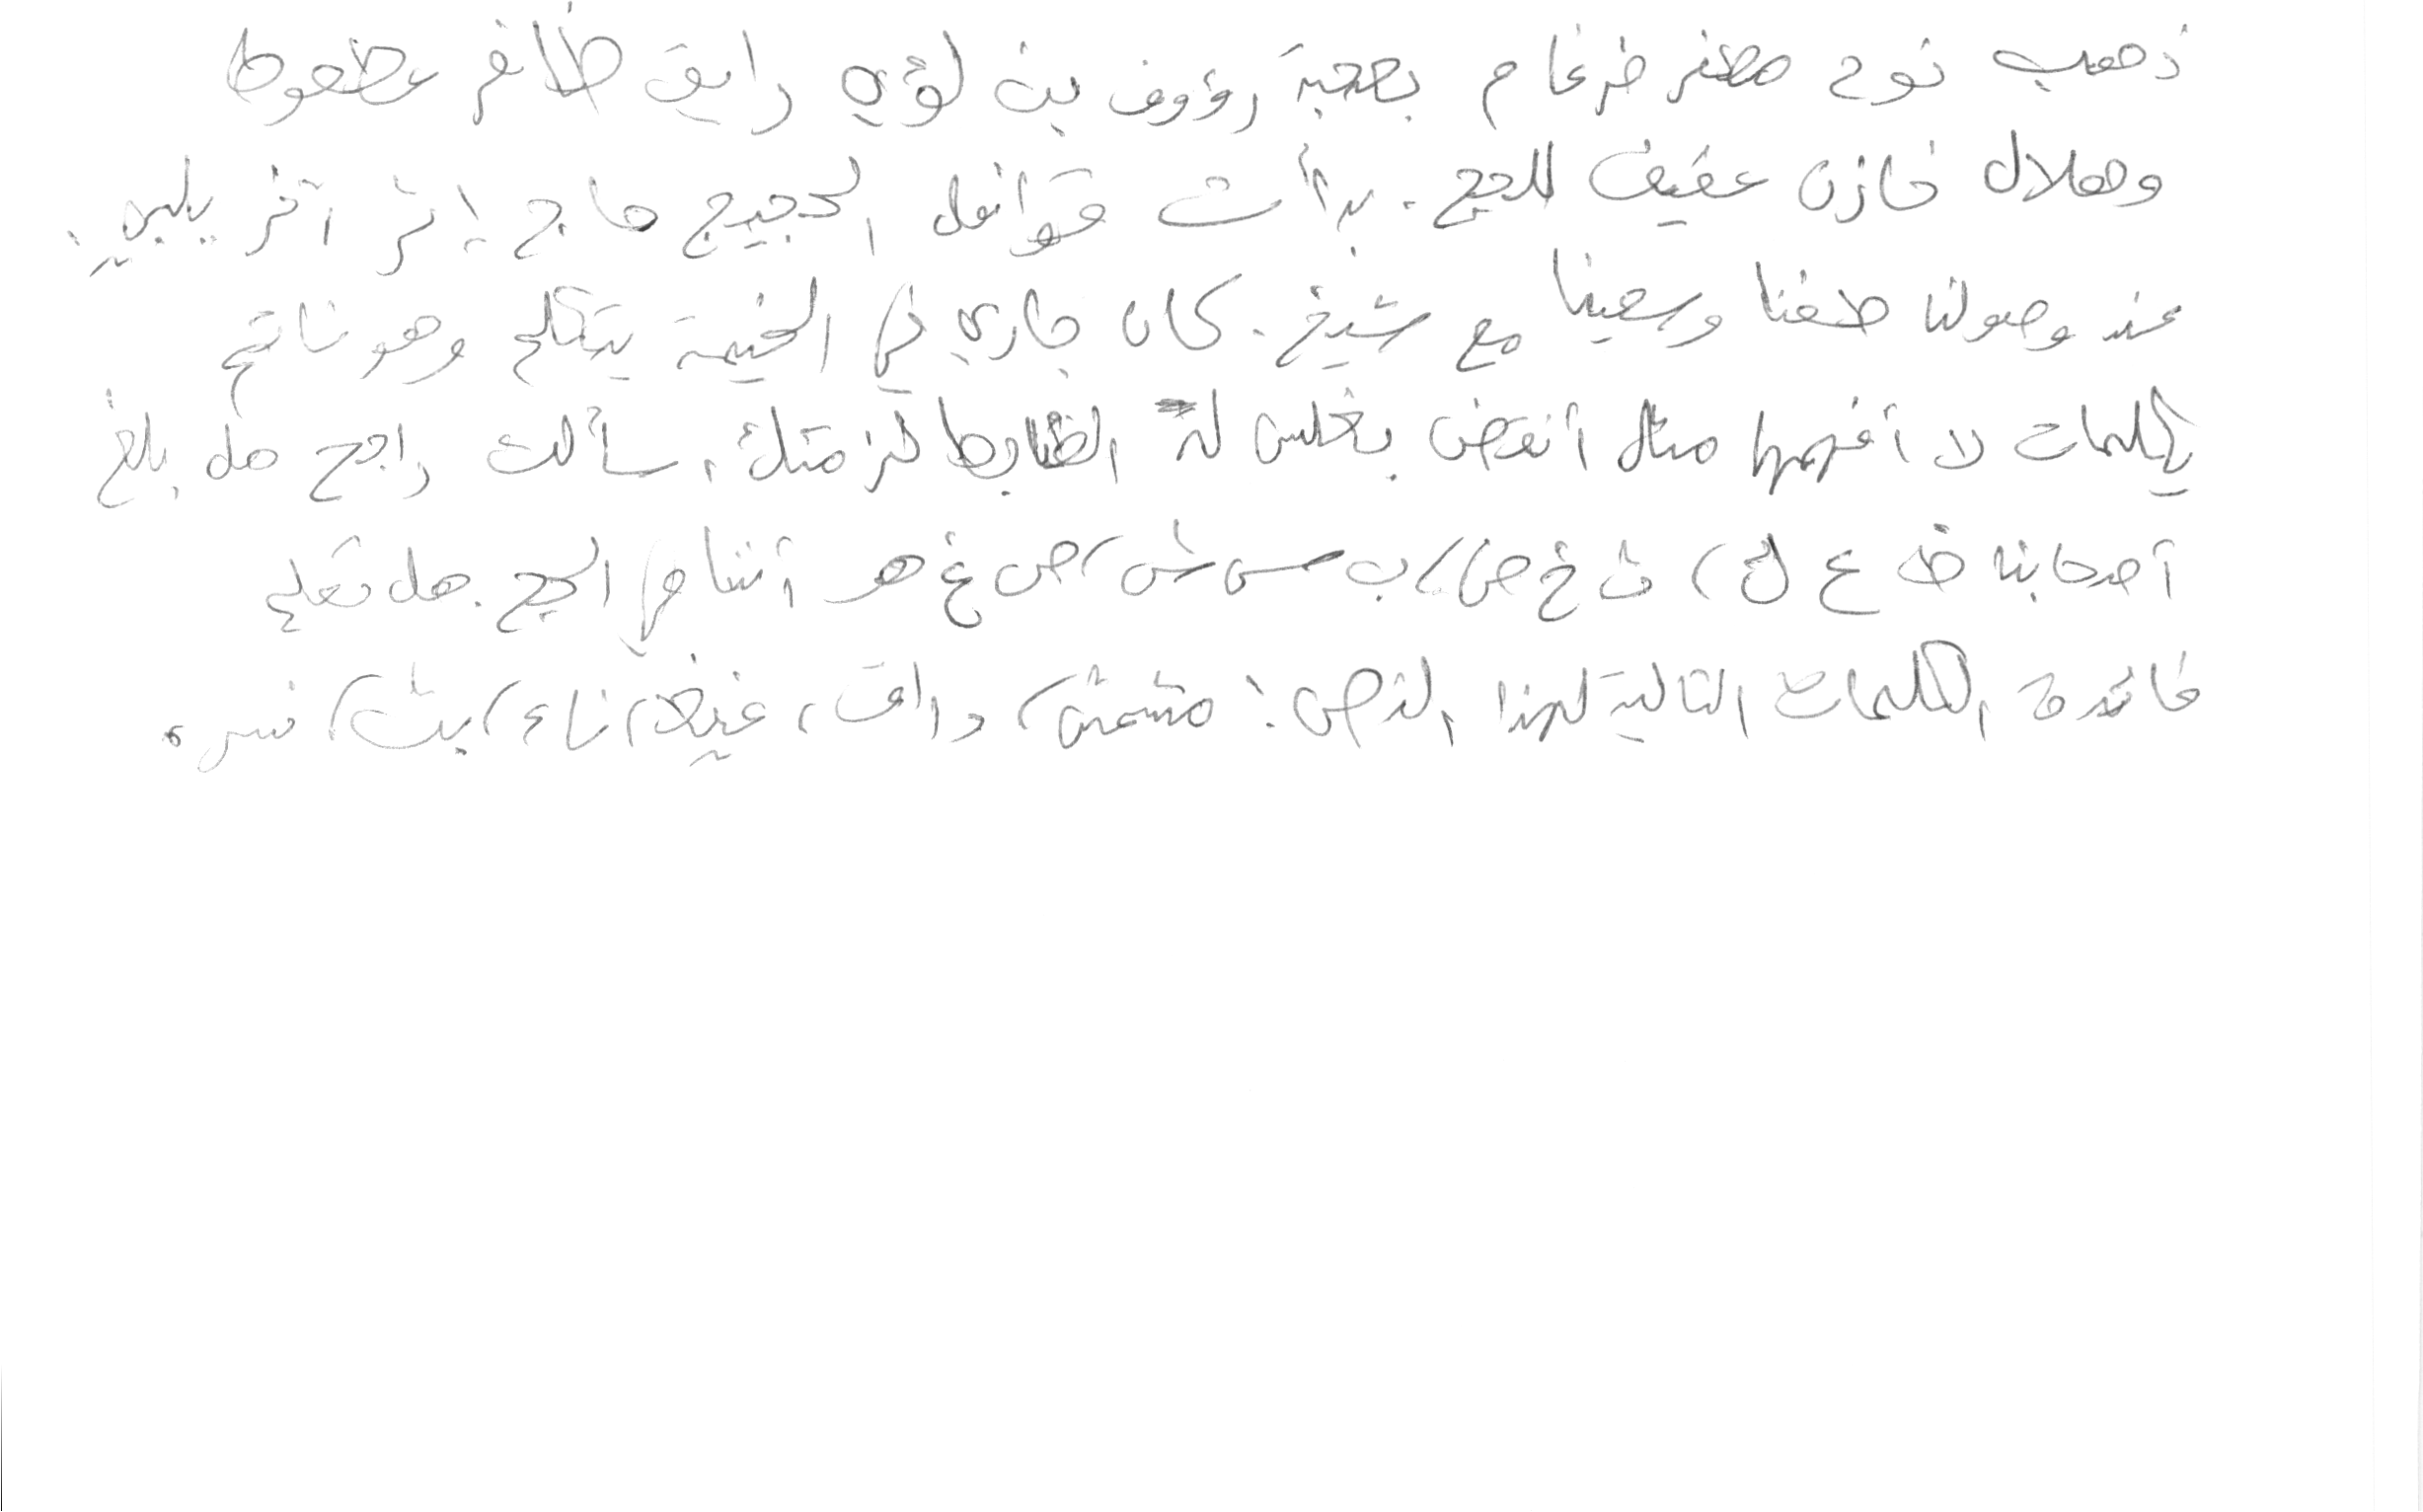 ذهب نوح مظفر ضرغام بصحبة رؤوف بن لؤي رايق ظافر عظعوط
وهلال خازن عفيف للحج. بدأت قوافل الحجيج حاج إثر آخر يلبي.
عند وصولنا طفنا وسعينا مع شيخ. كان جاري في الخيمة يتكلم وهو نائم
بكلمات لا أفهمها مثل أنقض بغلس لة الضابط لز متك. سألت راجح هل بلغ
أصحابنا ظ ع ك، ث خ ض، ب س ش، ص غ هـ أثناء الحج. هل تعلم
فائدة الكلمات التالية لهذا النص: مشمش، دافق، غيظ، ناء، بث، نسر.